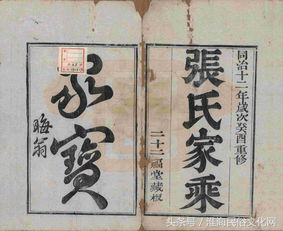 同治十二年歲次癸酉重修
張氏家乘
二十二福堂藏板
家寶
晦翁
头条号/淮南民俗文化网